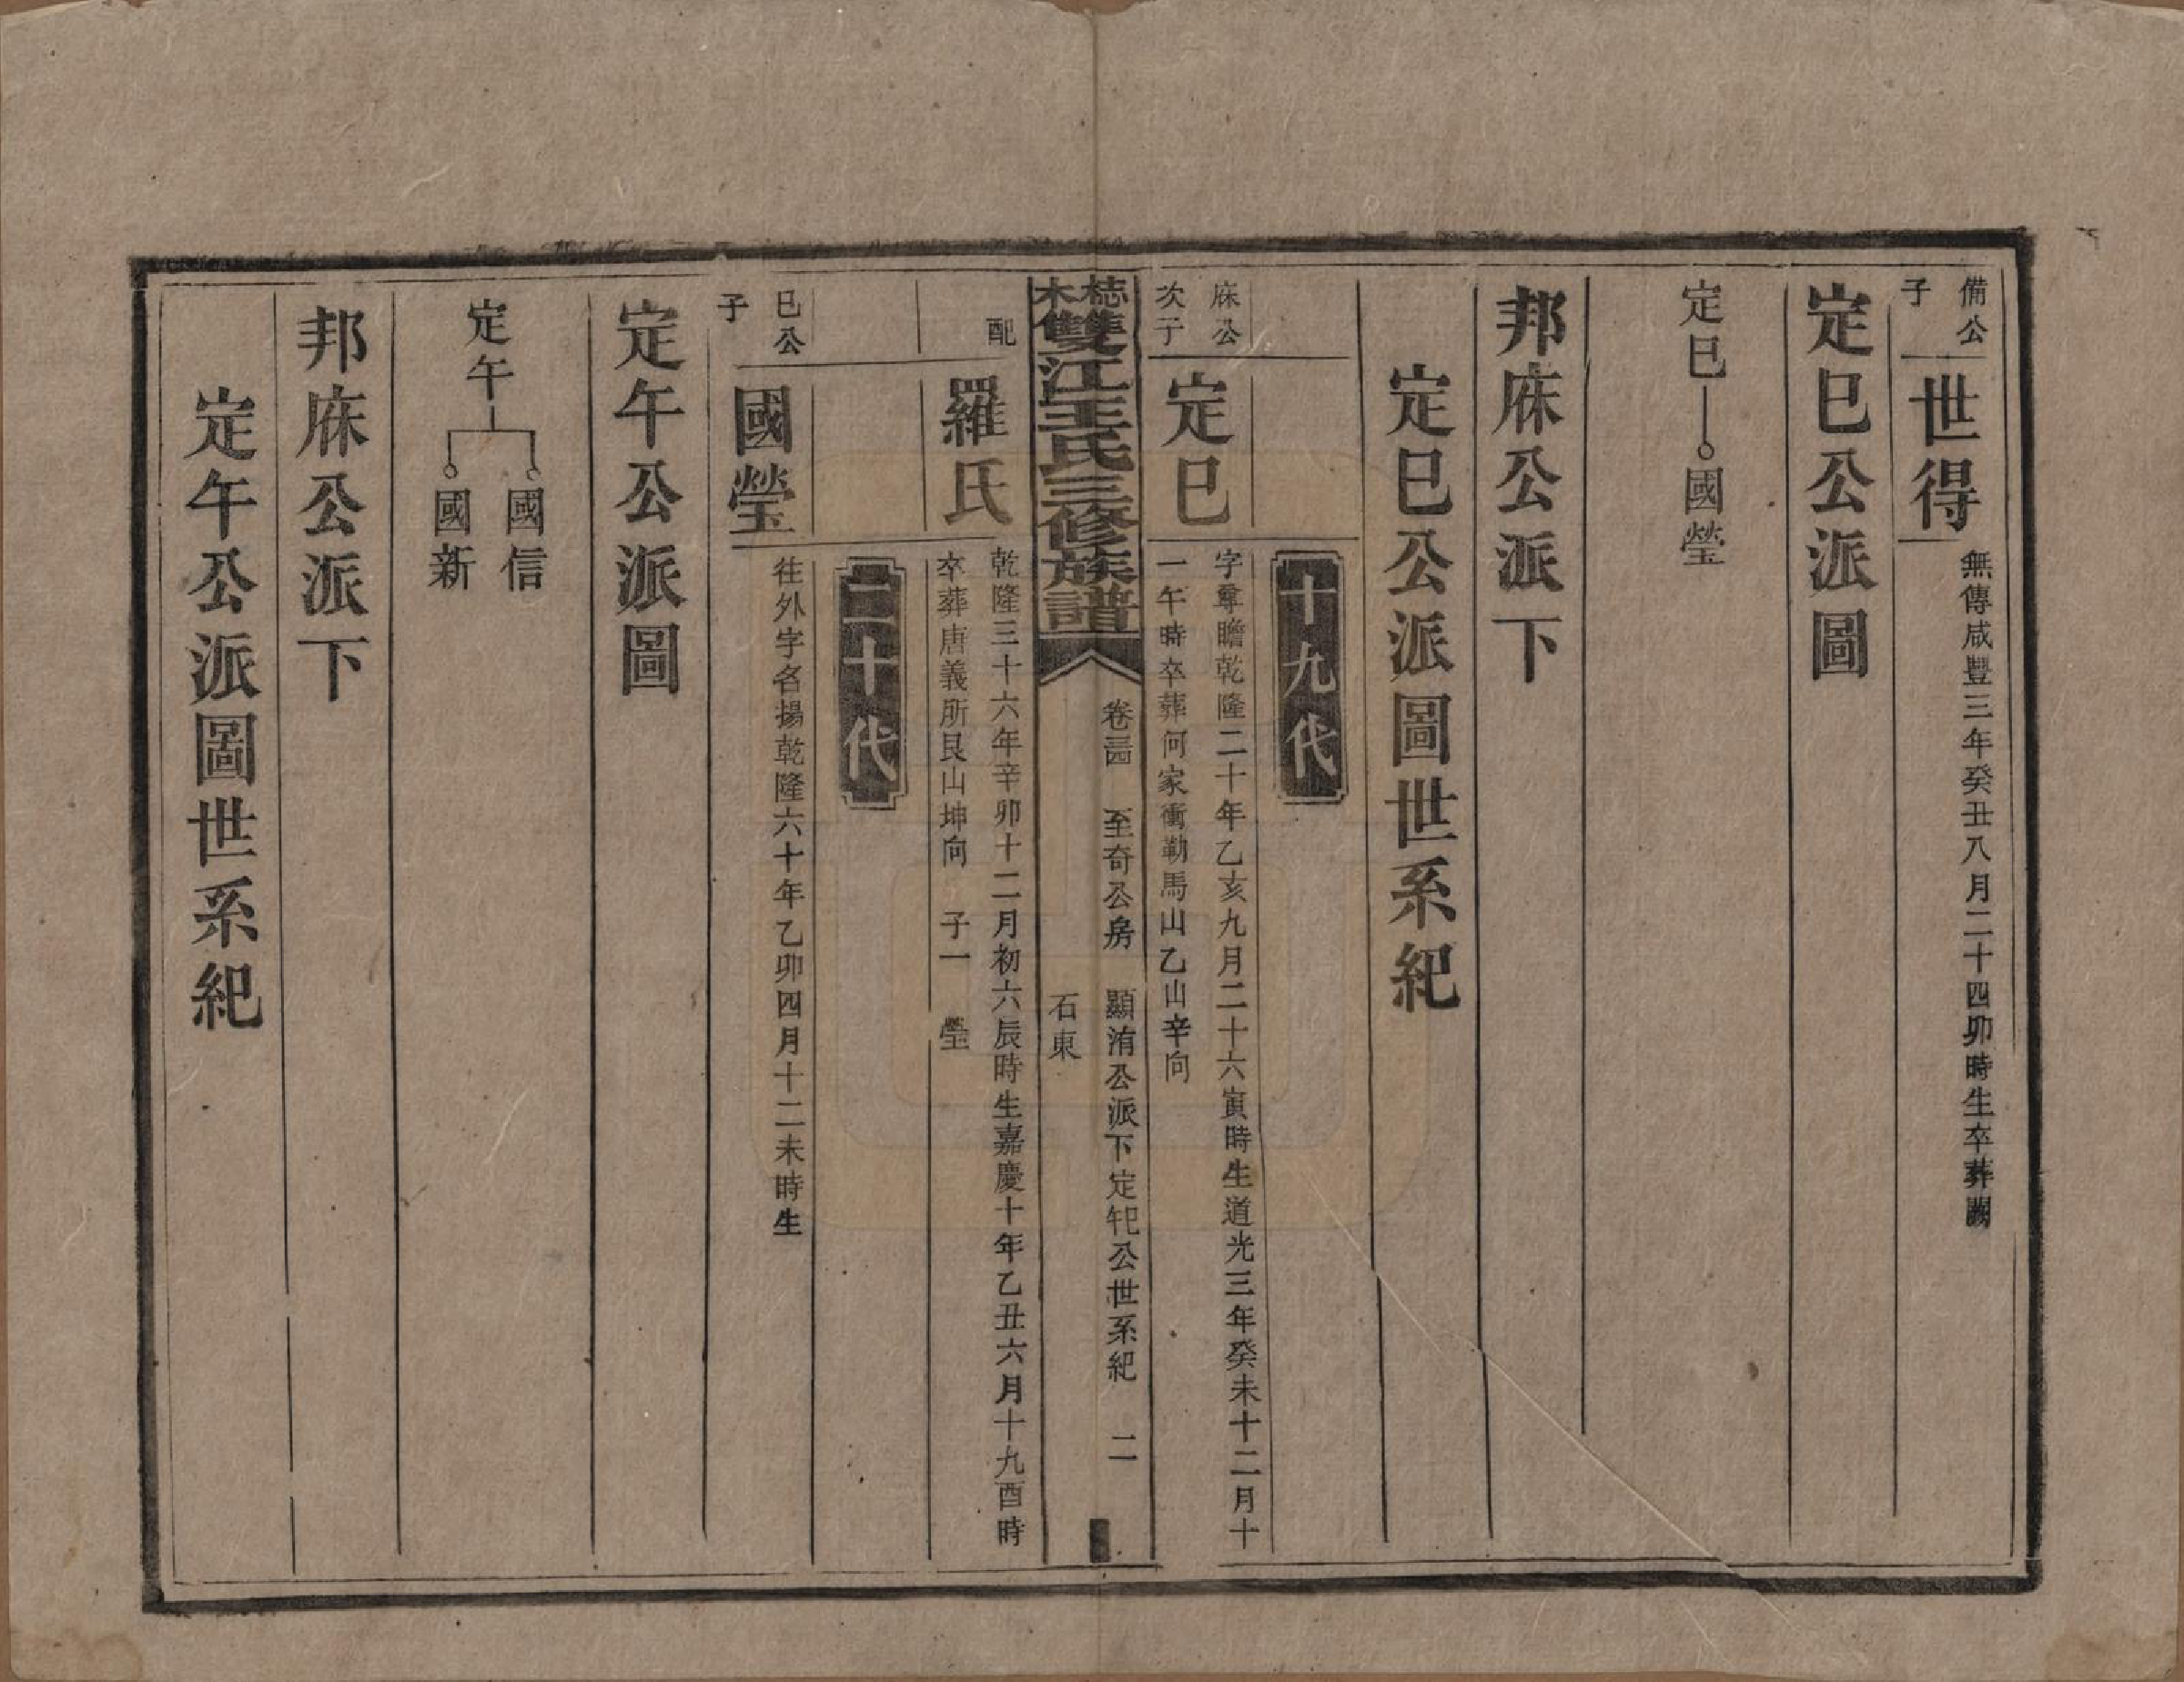 備公
子
世得
無傳咸豐三年癸丑八月二十四卯時生卒葬闕
定巳公派圖
定巳
國瑩
邦庥公派下
定巳公派圖世系紀
十九代
庥公
次子
定巳
字尊瞻乾隆二十年乙亥九月二十六寅時生道光三年癸未十二月十
一午時卒葬何家衝勒馬山乙山辛向
雙江王氏三修族譜
卷 至奇公房 顯洧公派下定公世系紀 二
石東
配
羅氏
乾隆三十六年辛卯十二月初六辰時生嘉慶十年乙丑六月十九酉時
卒葬唐義所艮山坤向 子一 瑩
二十代
巳公
子
國瑩
往外字名揚乾隆六十年乙卯四月十二未時生
定午公派圖
定午
國信
國新
邦庥公派下
定午公派圖世系紀